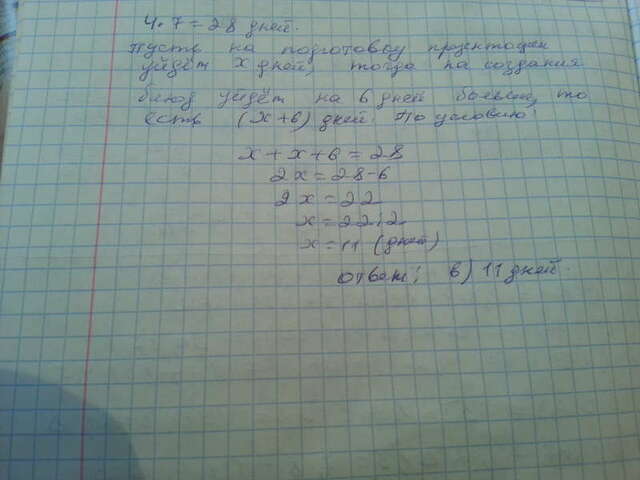 4·7=28 дней.
Пусть на подготовку
уйдёт x дней, тогда на создания
уйдёт на 6 дней то
есть (x+6) дней. По условию:
x+x+6=28
2x=28-6
2x=22
x=22:2
x=11 (дней)
Ответ: в) 11 дней.